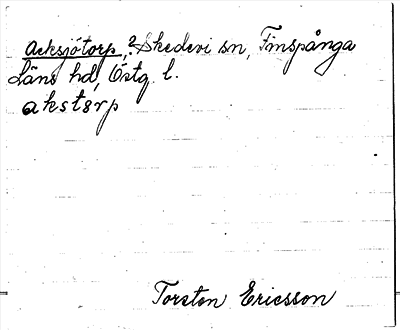 Acksjötorp,? Skedevi sn, Finspånga
läns hd, Östg. l.
akstörp
Torsten Ericsson